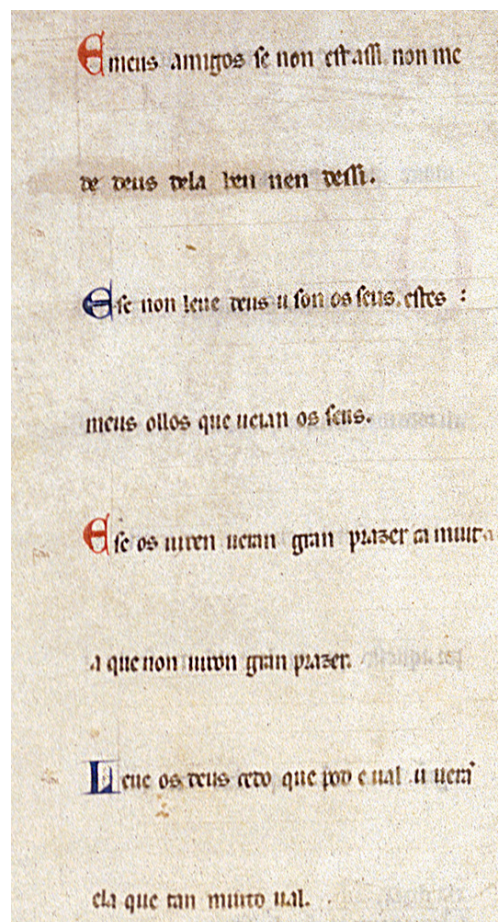 E meus amigos se non est assi. non me
de deus dela ben nen dessi.
E se non leue deus u son os seus. estes :
meus ollos que ueian os seus.
E se os uiren ueran gran prazer ca muit a
a que non uiron gran prazer.
Leue os deus cedo que pod e ual. u uerã
ela que tan muito ual.